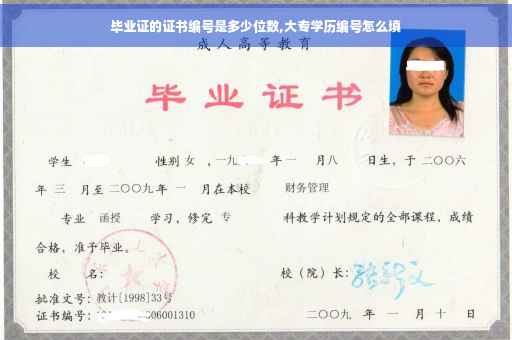 毕业证的证书编号是多少位数,大专学历编号怎么填
成人高等教育
毕业证书
学生 性别 女 ,一九 年 一 月 八 日生, 于 二〇〇六
年 三 月至 二〇〇九 年 一 月在本校 财务管理
专业 函授 学习, 修完 专 科教学计划规定的全部课程, 成绩
合格, 准予毕业。
校 名: 校(院)长:
批准文号: 教计[1998]33号
证书编号: 06001310 二〇〇九 年 一 月 十 日